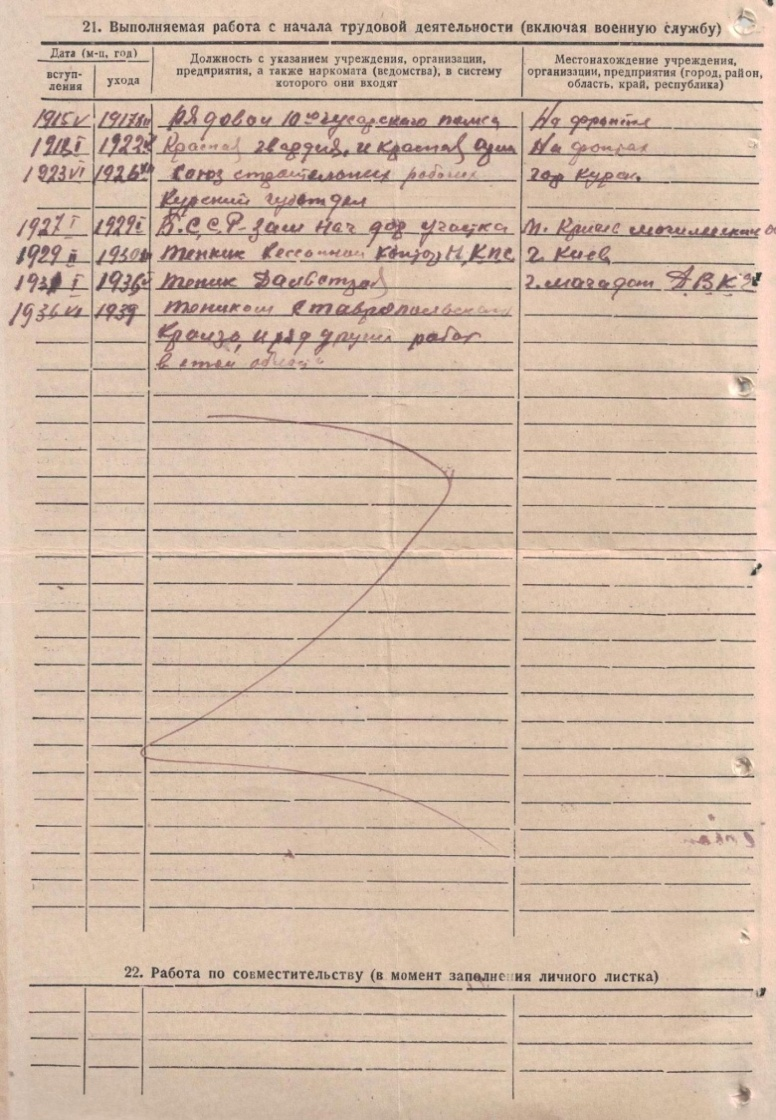 21. Выполняемая работа с начала трудовой деятельности (включая военную службу)
Дата (м-ц, год)
вступ-
ления
ухода
Должность с указанием учреждения, организации,
предприятия, а также наркомата (ведомства), в систему
которого они входят
Местонахождение учреждения,
организации, предприятия (город, район,
область, край, республика)
1915 V 1917 Рядовой 10го гусарского полка На фронте
1918 I 1922 Красная гвардия, и Красная На фронтах
1923 VI 1926 Союз строительных рабочих гор Курск.
Курский губотдел
1927 I 1929 I Б.С.С.Р - зам нач дор участка М.
1929 II 1930 техник Н.К.ПС г. Киев
1931 I 1936 техник г. магадан Д.В.К.
1936 VI 1939 техником Ставропольского
Крайзо, и ряд других работ
в этой области
22. Работа по совместительству (в момент заполнения личного листка)